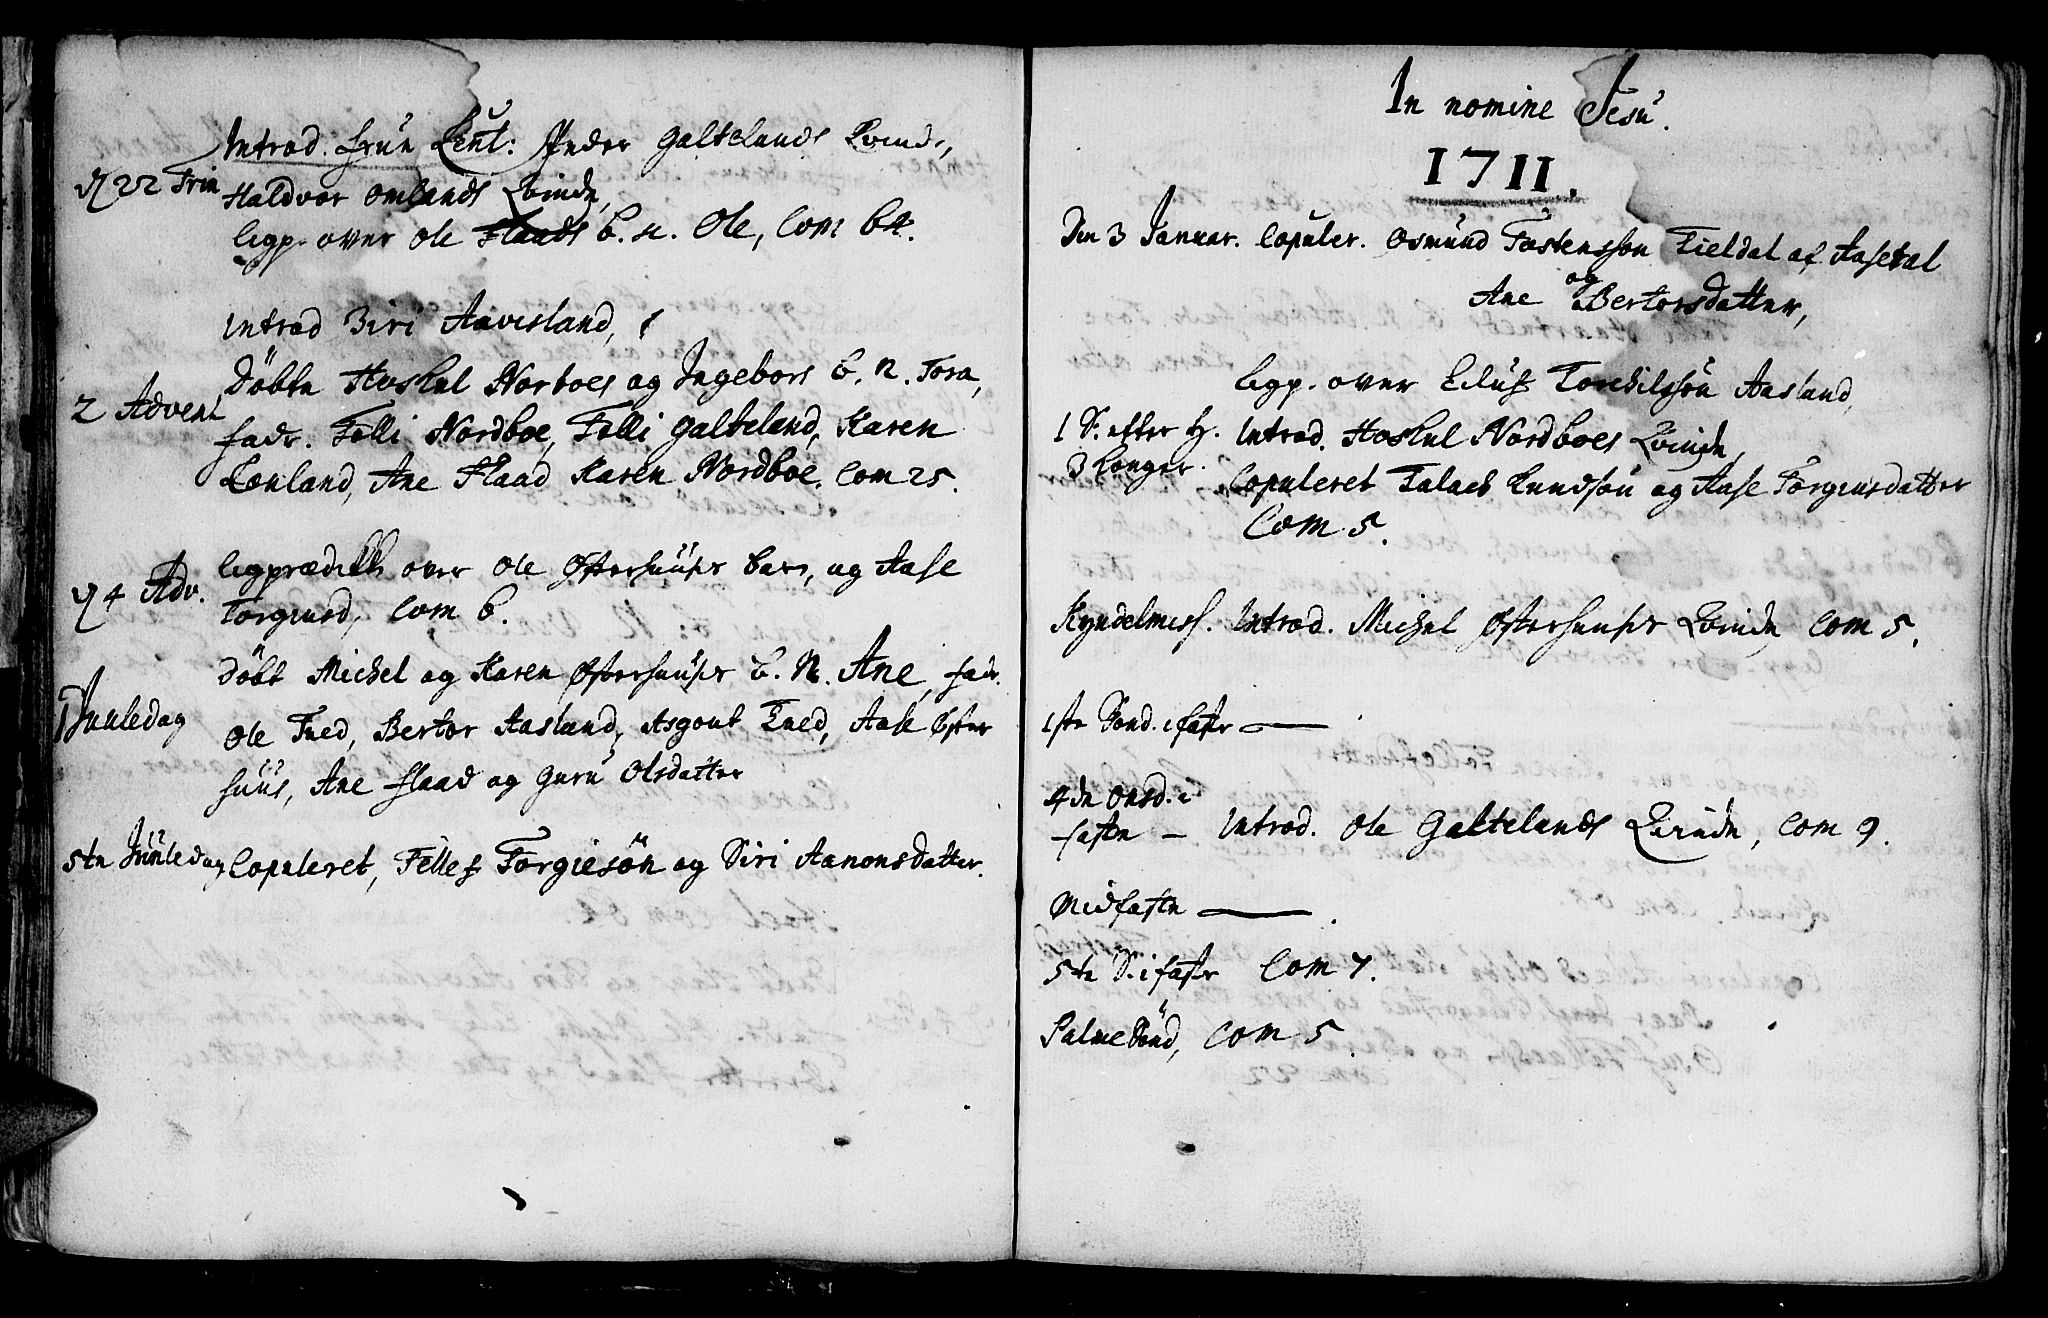 Introd. fruu Leut: Peder Galtelands Kvinde,
D 22 Trin Haldvor Omlands Kvinde,
ligp. over Ole Flaads b. n. Ole, Com 64.
Introd Siri Aavesland,
Döbte Hoskul Norboes og Ingebors b. n. Tora,
2 Advent fadr. Felli Nordboe, Felli Galteland, Karen
Lonland, Ane Flaad Karen Nordboe. Com 25.
ligprædik over Ole Østerhuuses barn, og Aase
D 4 Adv. Torgiusd, Com 6.
Döbt Michel og Karen Østerhuuses b. N. Ane, fadr.
1 Juuledag Ole Tued, Bertor Aasland, Asgout Tued, Aase Øster
huus, Ane Flaad og Guru Olsdatter
5te Juuledag Copuleret, Fellef Torgiesön og Siri Aanonsdatter.
In nomine Jesu.
1711.
Den 3 Januar. Copuler. Osmund Tostensson Fieldal af Aasetal
og
Ane Bertorsdatter,
ligp. over Eilüf Torchilssön Aasland,
1 S. efter H. Introd. Hoskul Nordboes Kvinde,
3 Konger. Copuleret Talaes Knudsön og Aase Torgiusdatter
Com 5.
Kyndelmess. Introd. Michel Østerhuuses Kvinde Com 5.
1ste Sönd. i faste
4de Onsd. i
fasten - Introd. Ole Galtelands Kvinde, Com 9.
Midfaste
5te S. i faste Com 7.
Palme Sönd, Com 5